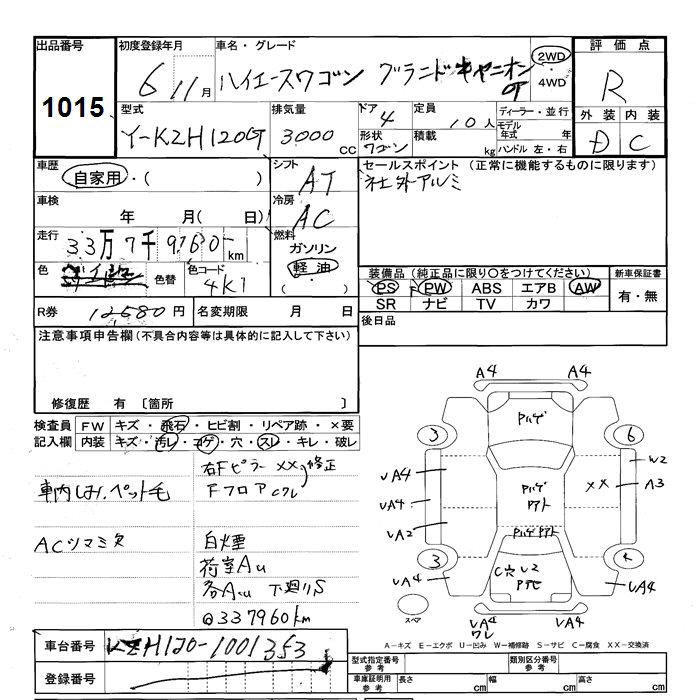 出品番号
1015
初度登録年月
6 11月
車名・グレード
ハイエースワゴン グランドキャニオン
2WD
・
4WD
評価点
R
型式
Y-KZH120G
排気量
3000
CC
ドア
4
形状
ワゴン
定員
10人
積載
kg
ディーラー・並行
モデル
年式 年
ハンドル 左・右
外装 内装
D C
車歴
自家用・( )
シフト
AT
セールスポイント (正常に機能するものに限ります)
社外アルミ
車検
年 月( 日)
冷房
AC
走行
33万7千9760-km
燃料
ガソリン
軽油
・( )
色
色替
色コード
4K1
装備品 (純正品に限り○をつけてください)
PS PW ABS エアB AW
SR ナビ TV カワ
新車保証書
有・無
R券 12580円
名変期限 月 日
後日品
注意事項申告欄 (不具合内容等は具体的に記入して下さい)
修復歴 有 〔箇所 〕
検査員
記入欄
FW キズ・飛石・ヒビ割・リペア跡・×要
内装 キズ・汚レ・コゲ・穴・スレ・キレ・破レ
右Fピラー ××
Fフロア
修正
車内しみ、ペット毛
ACツマミ欠
白煙
荷室AU
各AU 下廻りS
@337960km
A4 A4
3 6
UA4
UA4
UA2
UA4
W2
A3
××
3
UA4
C穴 U2
スペア
UA4
ワレ
UA4
A-キズ E-エクボ U-凹み W-補修跡 S-サビ C-腐食 XX-交換済
車台番号
KZH120-1001353
登録番号
型式指定番号
参考
類別区分番号
参考
車庫証明用
参考
長さ cm
幅 cm
高さ cm